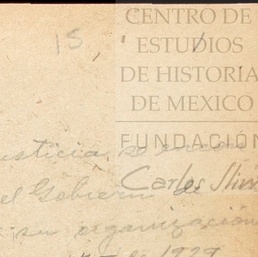 15,
CENTRO DE
ESTUDIOS
DE HISTORIA
DE MEXICO
FUNDACIÓN
Carlos Slim
usticia, se
el Gobierno de
su organización
de 1929